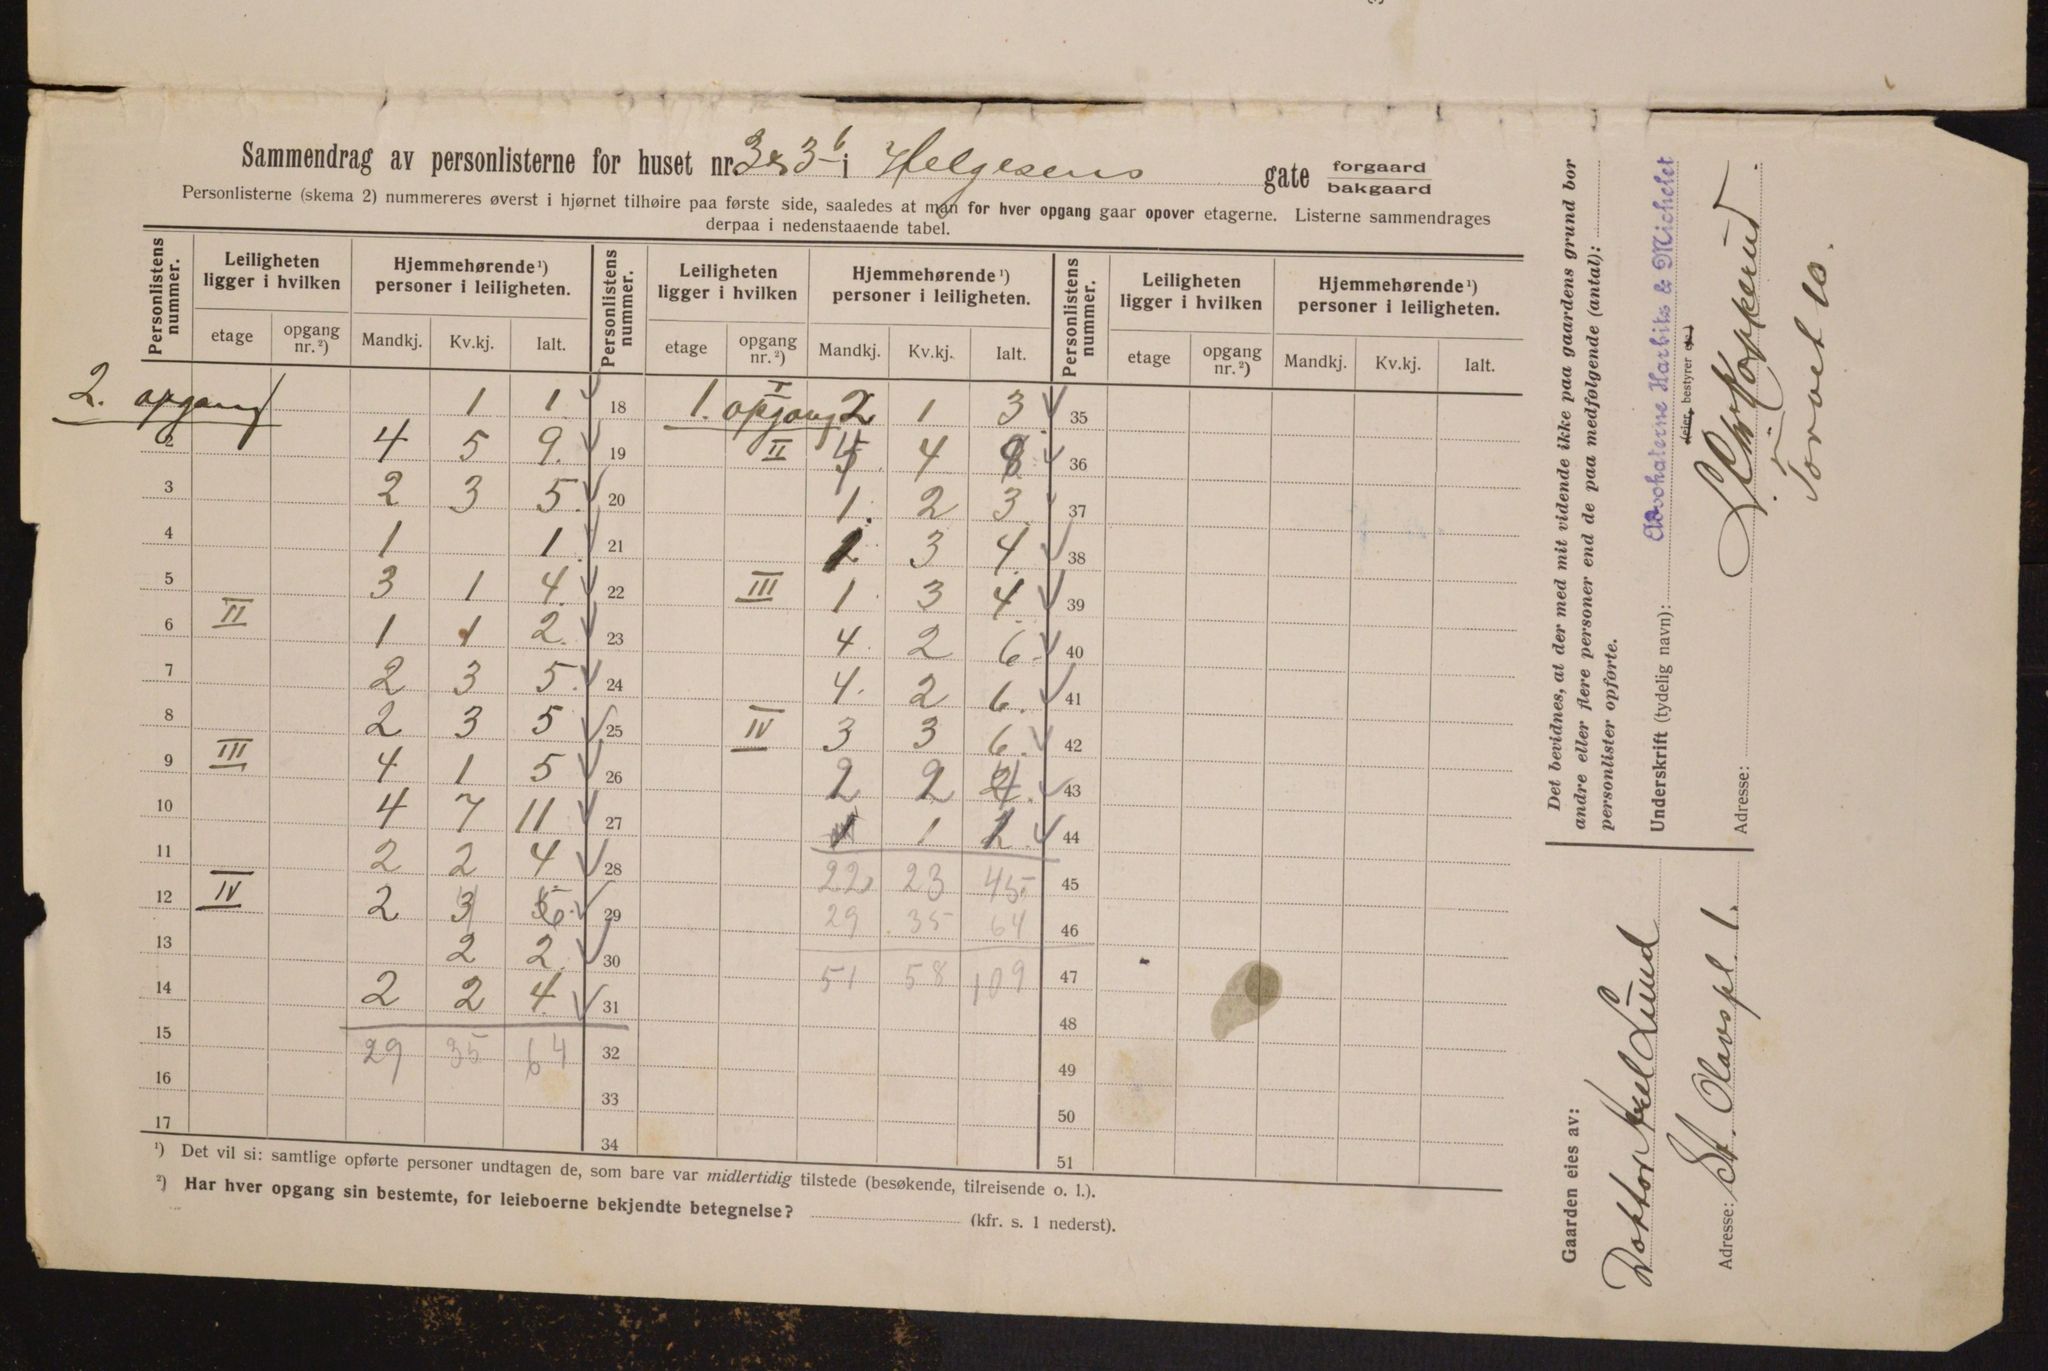 Sammendrag av personlisterne for huset nr. 3 & 3b i Helgesens gate forgaard
bakgaard
Personlisterne (skema 2) nummereres øverst i hjørnet tilhøire paa første side, saaledes at man for hver opgang gaar opover etagerne. Listerne sammendrages
derpaa i nedenstaaende tabel.
Personlistens nummer. Leiligheten ligger i hvilken Hjemmehørende ¹) personer i leiligheten. Personlistens nummer. Leiligheten ligger i hvilken Hjemmehørende ¹) personer i leiligheten. Personlistens nummer. Leiligheten ligger i hvilken Hjemmehørende ¹) personer i leiligheten.
etage opgang nr. ²) Mandkj. Kv.kj. Ialt. etage opgang nr. ²) Mandkj. Kv.kj. Ialt. etage opgang nr. ²) Mandkj. Kv.kj. Ialt.
2. opgang 1 1 18 1. opgang I 2 1 3 35
2 4 5 9 19 II 4 8 36
3 2 3 5 20 1 2 3 37
4 1 1 21 3 4 38
5 3 1 4 22 III 1 3 4 39
6 II 1 1 2 23 4 2 6 40
7 2 3 5 24 4 2 6 41
8 2 3 5 25 IV 3 3 6 42
9 III 4 1 5 26 2 2 4 43
10 4 7 11 27 1 1 2 44
11 2 2 4 28 22 23 45 45
12 IV 2 29 29 35 64 46
13 2 2 30 51 58 109 47
14 2 2 4 31 48
15 29 35 64 32 49
16 33 50
17 34 51
¹) Det vil si: samtlige opførte personer undtagen de, som bare var midlertidig tilstede (besøkende, tilreisende o. l.).
²) Har hver opgang sin bestemte, for leieboerne bekjendte betegnelse? (kfr. s. 1 nederst).
Det bevidnes, at der med mit vidende ikke paa gaardens grund bor
andre eller flere personer end de paa medfølgende (antal):
personlister opførte.
Advokaterne Harbitz & Michelet
Underskrift (tydelig navn):
eier, bestyrer
Adresse:
Torvet 10.
Gaarden eies av:
Doktor Axel Lund
Adresse: St. Olavspl. 1.